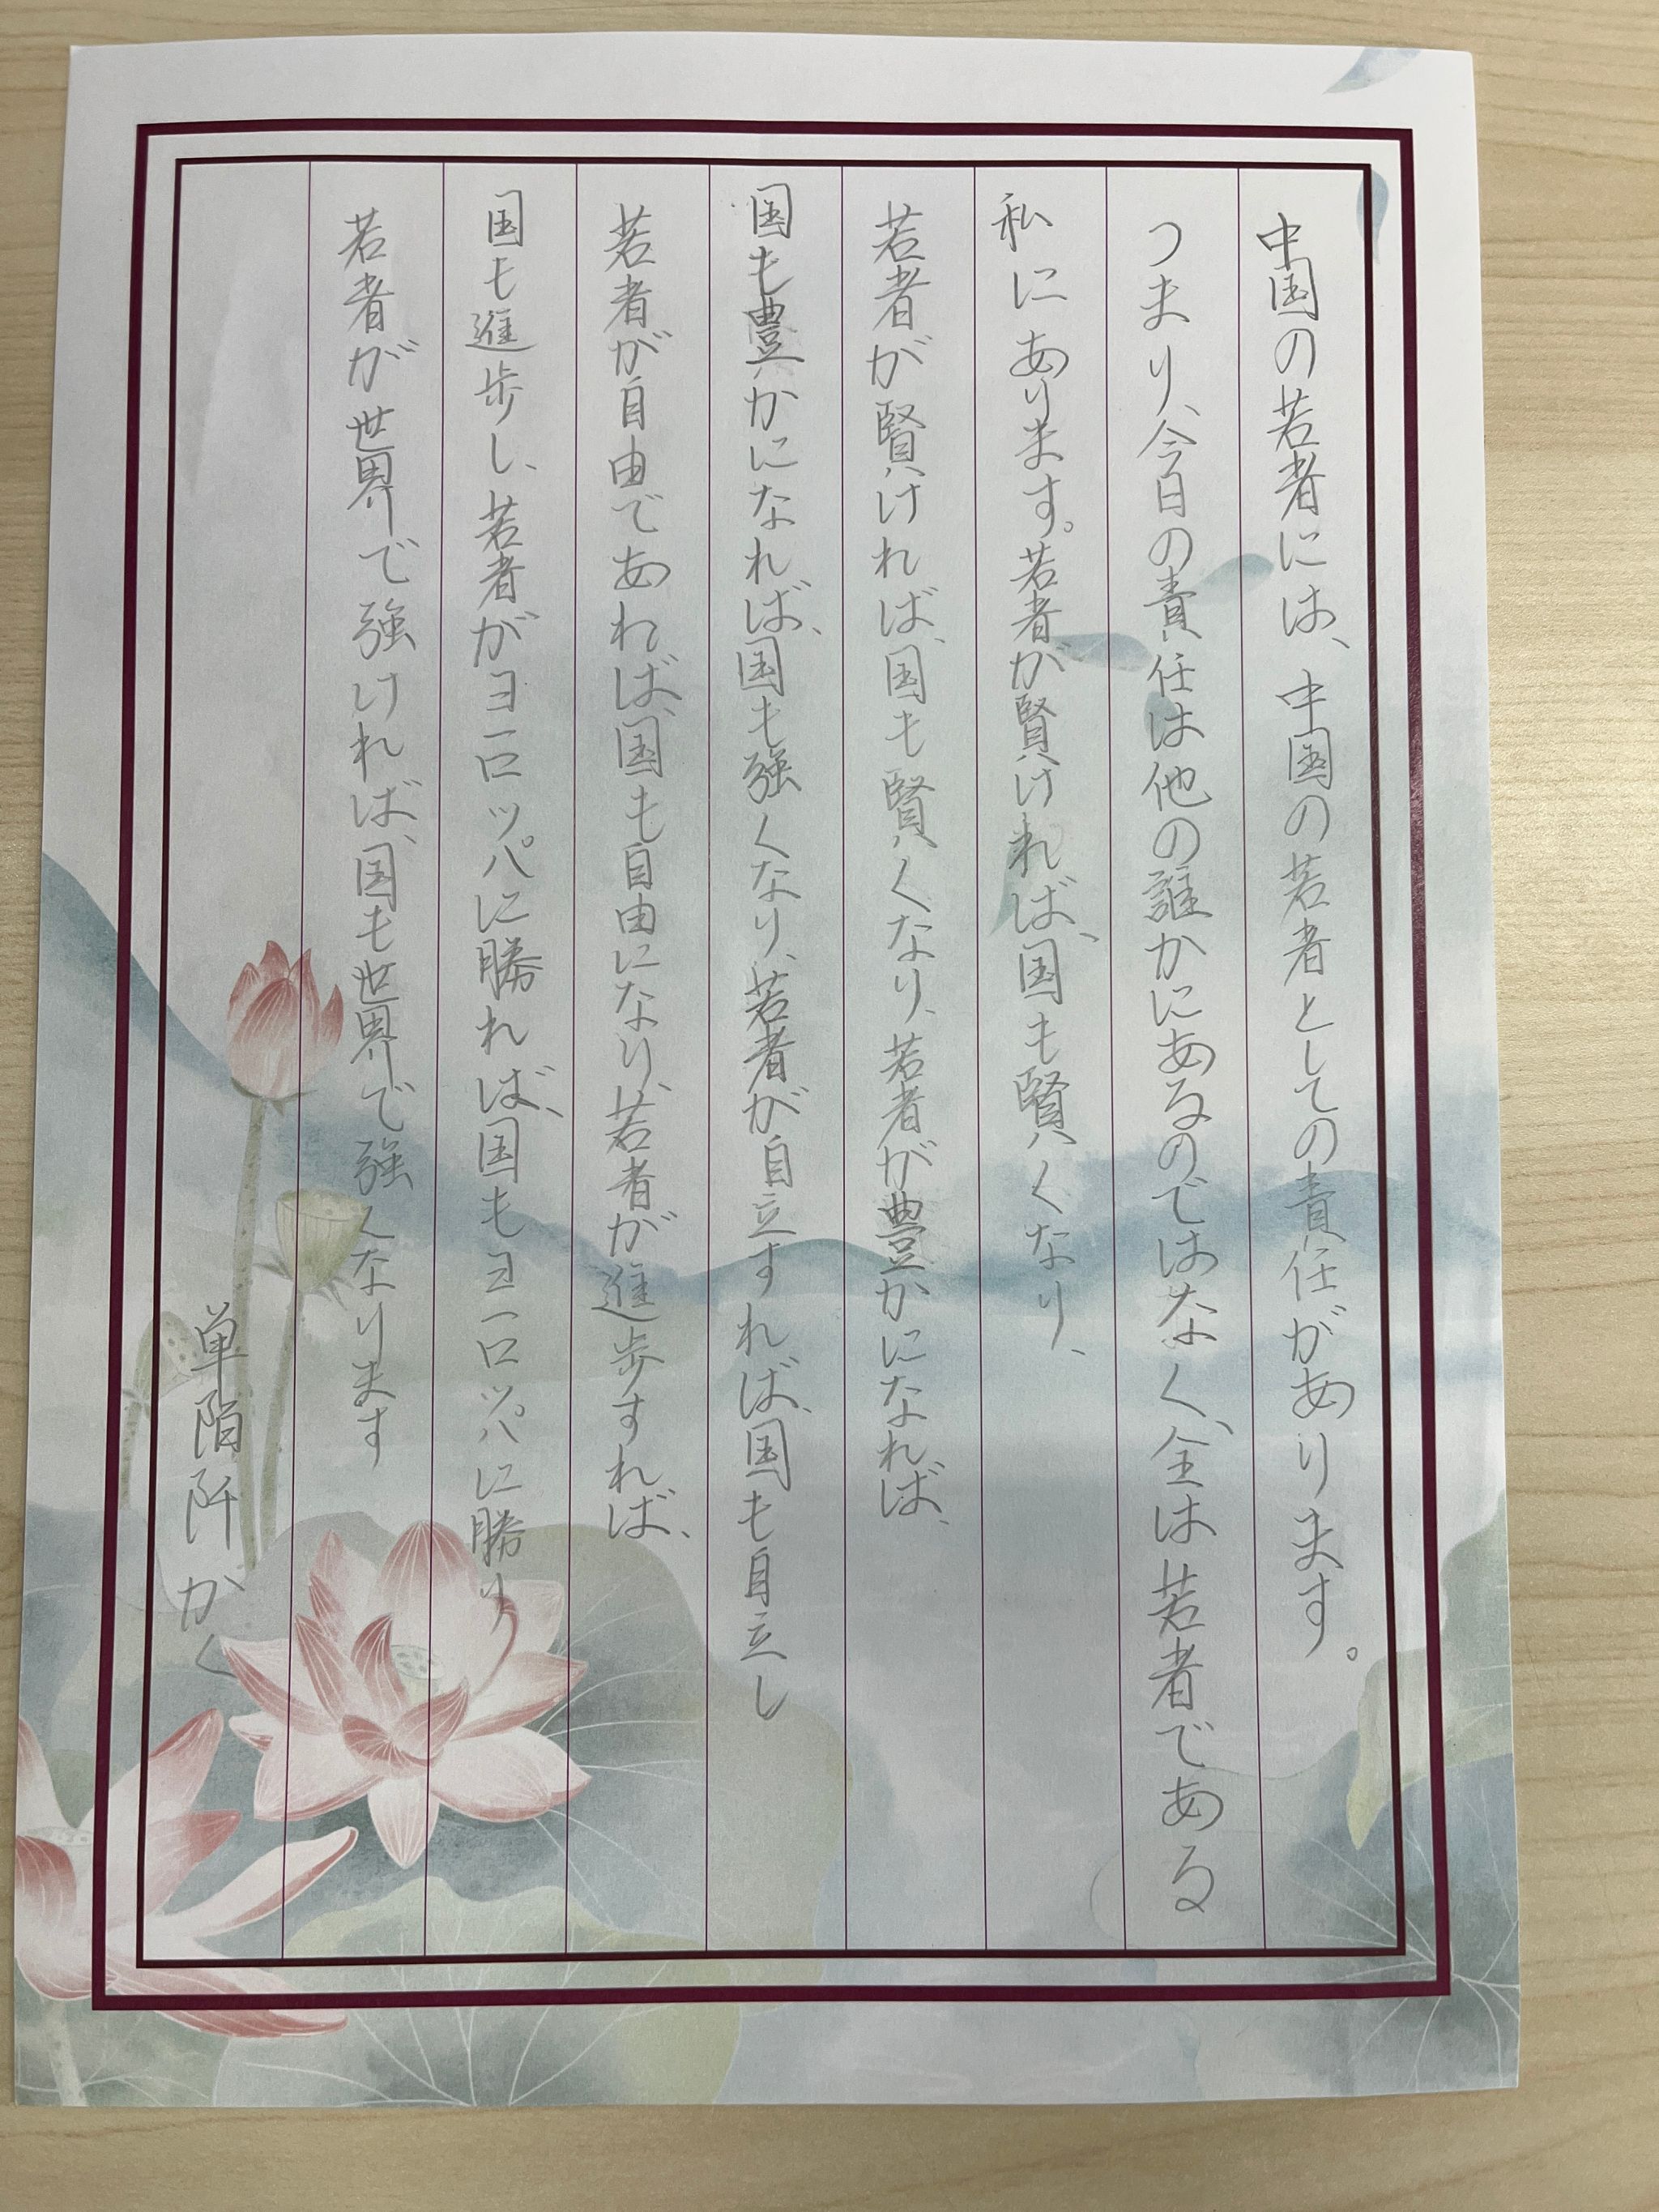 中国の若者には、中国の若者としての責任があります。
つまり、今日の責任は他の誰かにあるのではなく、全は若者である
私にあります。若者が賢ければ、国も賢くなり、
若者が賢ければ、国も賢くなり、若者が豊かになれば、
国も豊かになれば、国も強くなり、若者が自立すれば、国も自立し
若者が自由であれば、国も自由になり、若者が進歩すれば、
国も進歩し、若者がヨーロッパに勝れば、国もヨーロッパに勝り
若者が世界で強ければ、国も世界で強くなります
かく